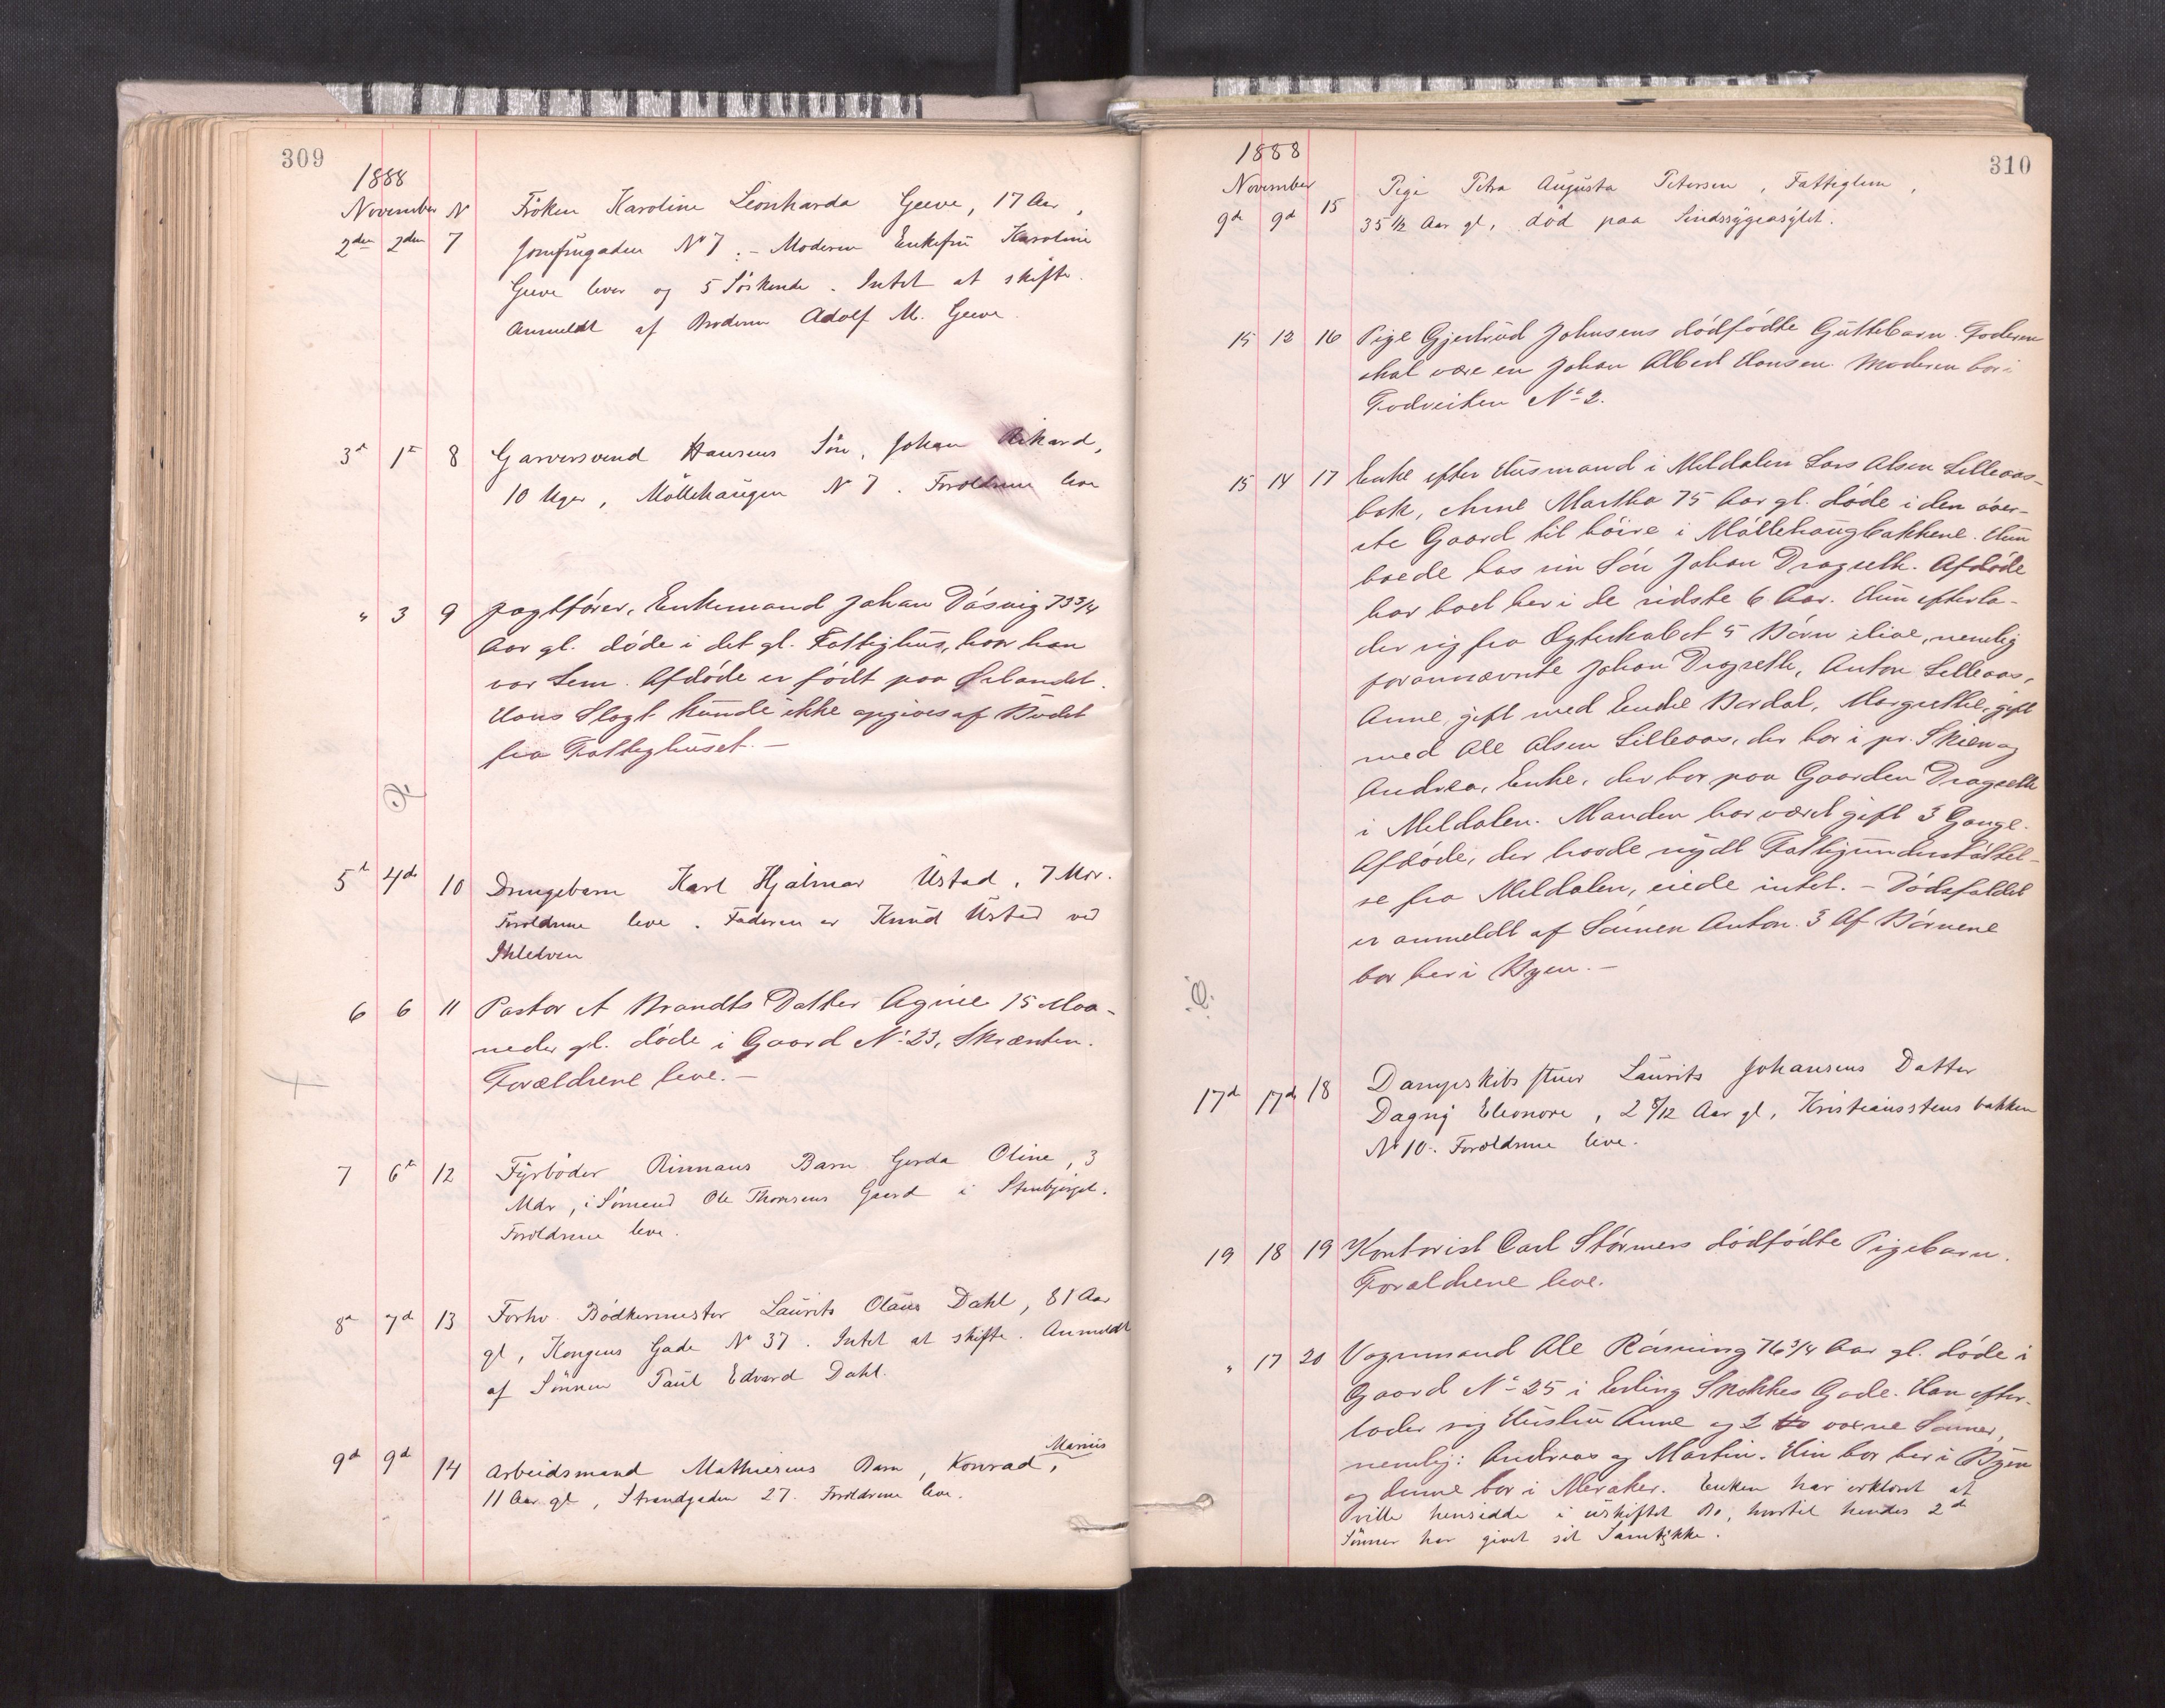 309
1888
November N Fröken Karoline Leonharda Geeve, 17 Aar,
2den 2den 7 Jomfrugaden No 7. – Moderen Enkefru Karoline
Geeve lever og 5 Söskende. Intet at skifte.
Anmeldt af Broderen Adolf M. Geeve.
3d 1st 8 Garversvend Hansens Sön, Johan Rikard,
10 Uger, Möllehaugen N 7. Forældrene leve
" 3 9 Jagtfører, Enkemand Johan Døsvig 73 3/4
Aar gl. døde i det gl. Fattighus, hvor han
var Lem. Afdøde er født paa Ørlandet.
Hans Slægt kunde ikke opgives af Budet
fra Fattighuset. –
5te 4de 10 Drengebarn Karl Hjalmar Ustad, 7 Mdr.
Forældrene leve. Faderen er Knud Ustad ved
Ihleelven
6 6 11 Pastor A Brandts Datter Agine 15 Maa-
neder gl. døde i Gaard No 23, Skrænten.
Forældrene leve. –
7 6te 12 Fyrböder Rinnans Barn Gerda Oline, 3
Mdr, i Sömand Ole Thomsens Gaard i Stenbjerget.
Forældrene leve.
8de 7d 13 Forhv. Bödkermester Laurits Olaus Dahl, 81 Aar
gl, Kongens Gade No 37. Intet at skifte. Anmeldt
af Sönnen Paul Edvard Dahl.
Marius
9de 9de 14 Arbeidsmand Mathiesens Barn, Konrad,
11 Aar gl, Strandgaden 27. Forældrene leve.
310
1888
November 15 Pige Petra Augusta Petersen, Fattiglem,
9de 9de 35 1/2 Aar gl, död paa Sindssygeasylet.
15 13 16 Pige Gjertrud Johnsens dødfødte Guttebarn. Faderen
skal være en Johan Albert Hansen. Moderen bor i
Fodveiten No 2.
15 14 17 Enke efter Husmand i Meldalen Lars Olsen Lilleaas-
bak, Ane Martha 75 Aar gl. døde i den øver-
ste Gaard til høire i Møllehaugbakkene. Hun
boede hos sin Søn Johan Dragseth. Afdøde
har boet her i de sidste 6 Aar. Hun efterla-
der sig fra Ægteskabet 5 Børn ilive, nemlig
forannævnte Johan Dragseth, Anton Lilleaas,
Anne, gift med Endre Bardal, Margrethe, gift
med Ole Olsen Lilleaas, der bor i pr. Skien og
Andrea, Enke, der bor paa Gaarden Dragseth
i Meldalen. Manden har været gift 3 Gange.
Afdøde, der havde nydt Fattigunderstøttel-
se fra Meldalen, eiede intet. – Dødsfaldet
er anmeldt af Sønnen Anton. 3 Af Børnene
bor her i Byen. –
17de 17de 18 Dampskibsfører Laurits Johansens Datter
Dagny Eleonore, 2 8/12 Aar gl, Kristiansstensbakken
No 10. Forældrene leve.
19 18 19 Kontorist Carl Størmers dødfødte Pigebarn.
Forældrene leve.
" 17 20 Vognmand Ole Røsning 76 3/4 Aar gl. døde i
Gaard No 25 i Erling Skakkes Gade. Han efter-
lader sig Hustru Anne og 2 to voxne Sønner,
nemlig: Andreas og Martin. Hin bor her i Byen
og denne bor i Meraker. Enken har erklæret at
ville hensidde i uskiftet Bo, hvortil hendes 2de
Sönner har givet sit Samtykke.